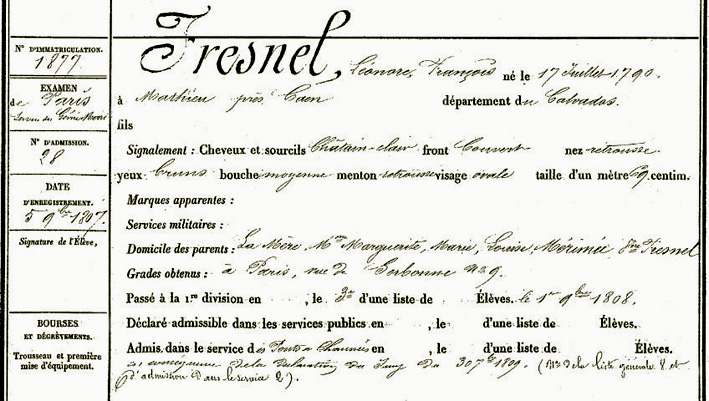 Fresnel, Léonore, François né le 17 Juillet 1790.
à Mathieu près Caen département du Calvados.
fils
Signalement : Cheveux et sourcils Châtain-clair front Couvert nez retroussé
yeux bruns bouche moyenne menton retroussé visage ovale taille d'un mètre 69 centim.
Marques apparentes :
Services militaires :
Domicile des parents : La Mère, Mme Marguerite, Marie, Louise Mérimée, Vve Fresnel
Grades obtenus : à Paris, rue de Sorbonne no 9.
Passé à la 1re division en , le 3e d'une liste de Élèves. le 1er 9bre 1808.
Déclaré admissible dans les services publics en , le d'une liste de Élèves.
Admis dans le service des Ponts & Chaussées , le d'une liste de Élèves.
en conséquence de la déclaration du Jury du 30 7bre 1809. (No de la liste générale 8 et
d'admission dans le service 2).
No D'IMMATRICULATION.
1877.
EXAMEN
de Paris
No D'ADMISSION.
28
DATE
D'ENREGISTREMENT.
5 9bre 1807.
Signature de l'Élève,
BOURSES
ET DÉGRÈVEMENTS.
Trousseau et première
mise d'équipement.